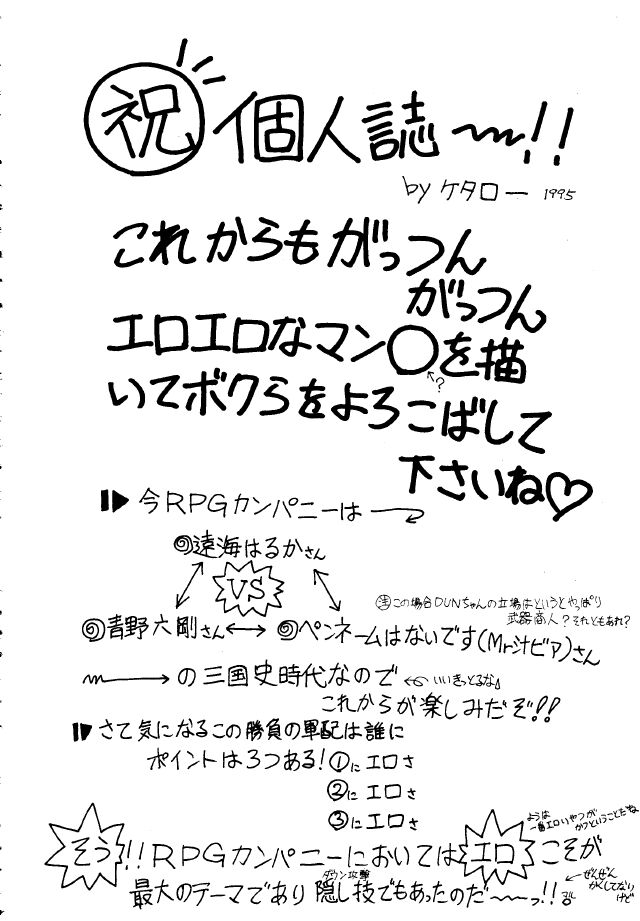 祝 個人誌〜!!
by ケタロー 1995
これからもがっつん
がっつん
エロエロなマン○を描
?
いてボクらをよろこばして
下さいね♡
今RPGカンパニーは
遠海はるかさん
VS
注この場合DUNちゃんの立場はというとやっぱり
武器商人?それともあれ?
青野六剛さん↔ペンネームはないです(Mr.汁ビア)さん
の三国史時代なので ←いいきっとるな
これからが楽しみだぞ!!
さて気になるこの勝負の軍配は誰に
ポイントは3つある!①にエロさ
②にエロさ
③にエロさ
ようは
一番エロいやつが
かつということだね
そう!!RPGカンパニーにおいてはエロこそが
ダウン攻撃
最大のテーマであり隠し技でもあったのだ〜っ!!
←ぜんぜん
かくしてない
けど